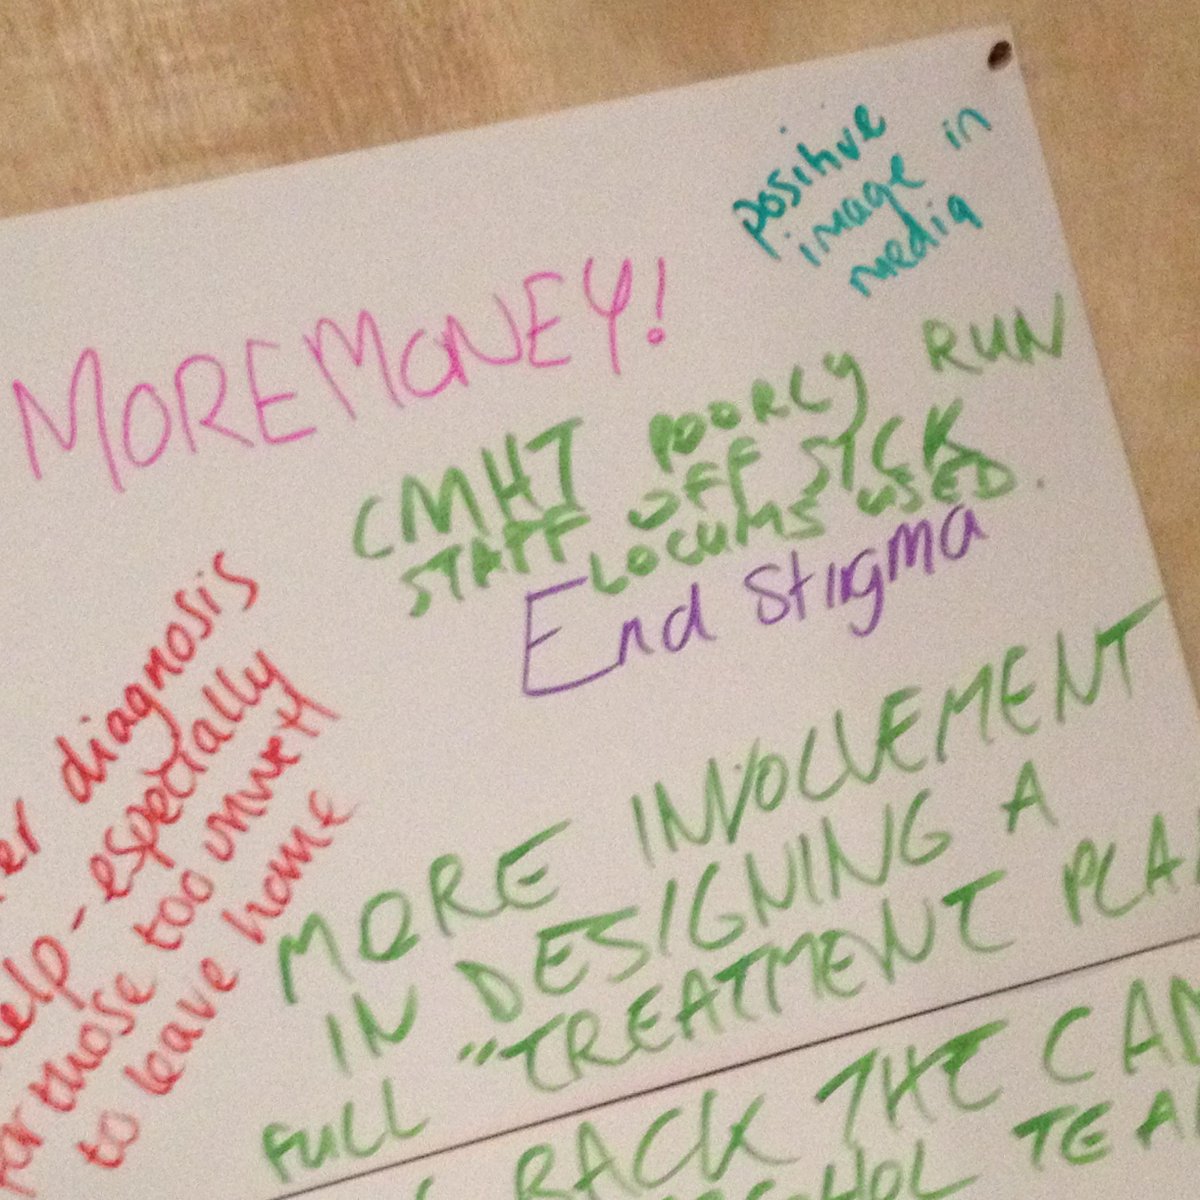 positive
image in
media
MORE MONEY!
CMHT POORLY RUN
STAFF OFF SICK
LOCUMS USED.
End Stigma
diagnosis
help - especially
for those too unwell
to leave home
MORE INVOLVEMENT
IN DESIGNING A
FULL "TREATMENT
BACK THE
TEA